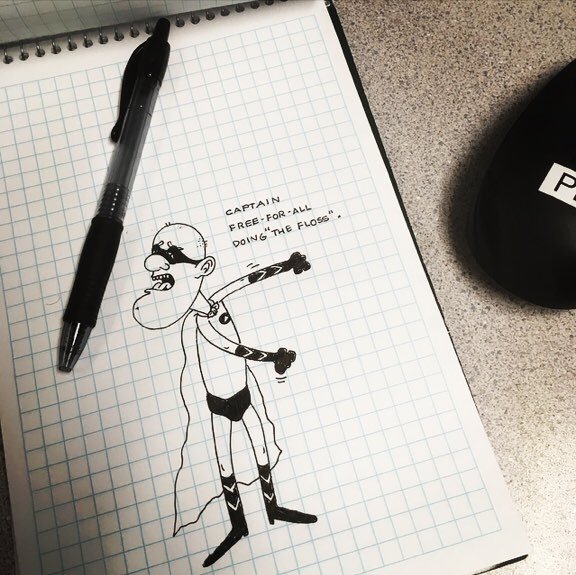 CAPTAIN
FREE-FOR-ALL
DOING "THE FLOSS".